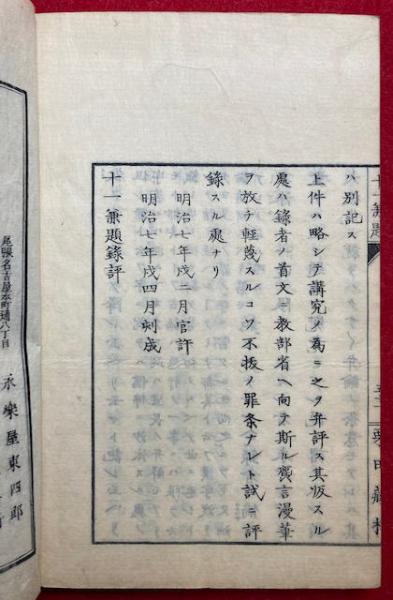 ハ別記ス
上件ハ略シテ講究ノ為ニ之ヲ弁評ス其版スル
處ハ錄者ノ首文ニ教部省ヘ向テ斯ル贅言漫筆
ヲ放テ軽蔑スルコソ不拔ノ罪条ナレト試ニ評
錄スル處ナリ
明治七年戌二月官許
明治七年戌四月刻成
十一兼題錄評
尾張名古屋本町通八丁目
永樂屋東四郎